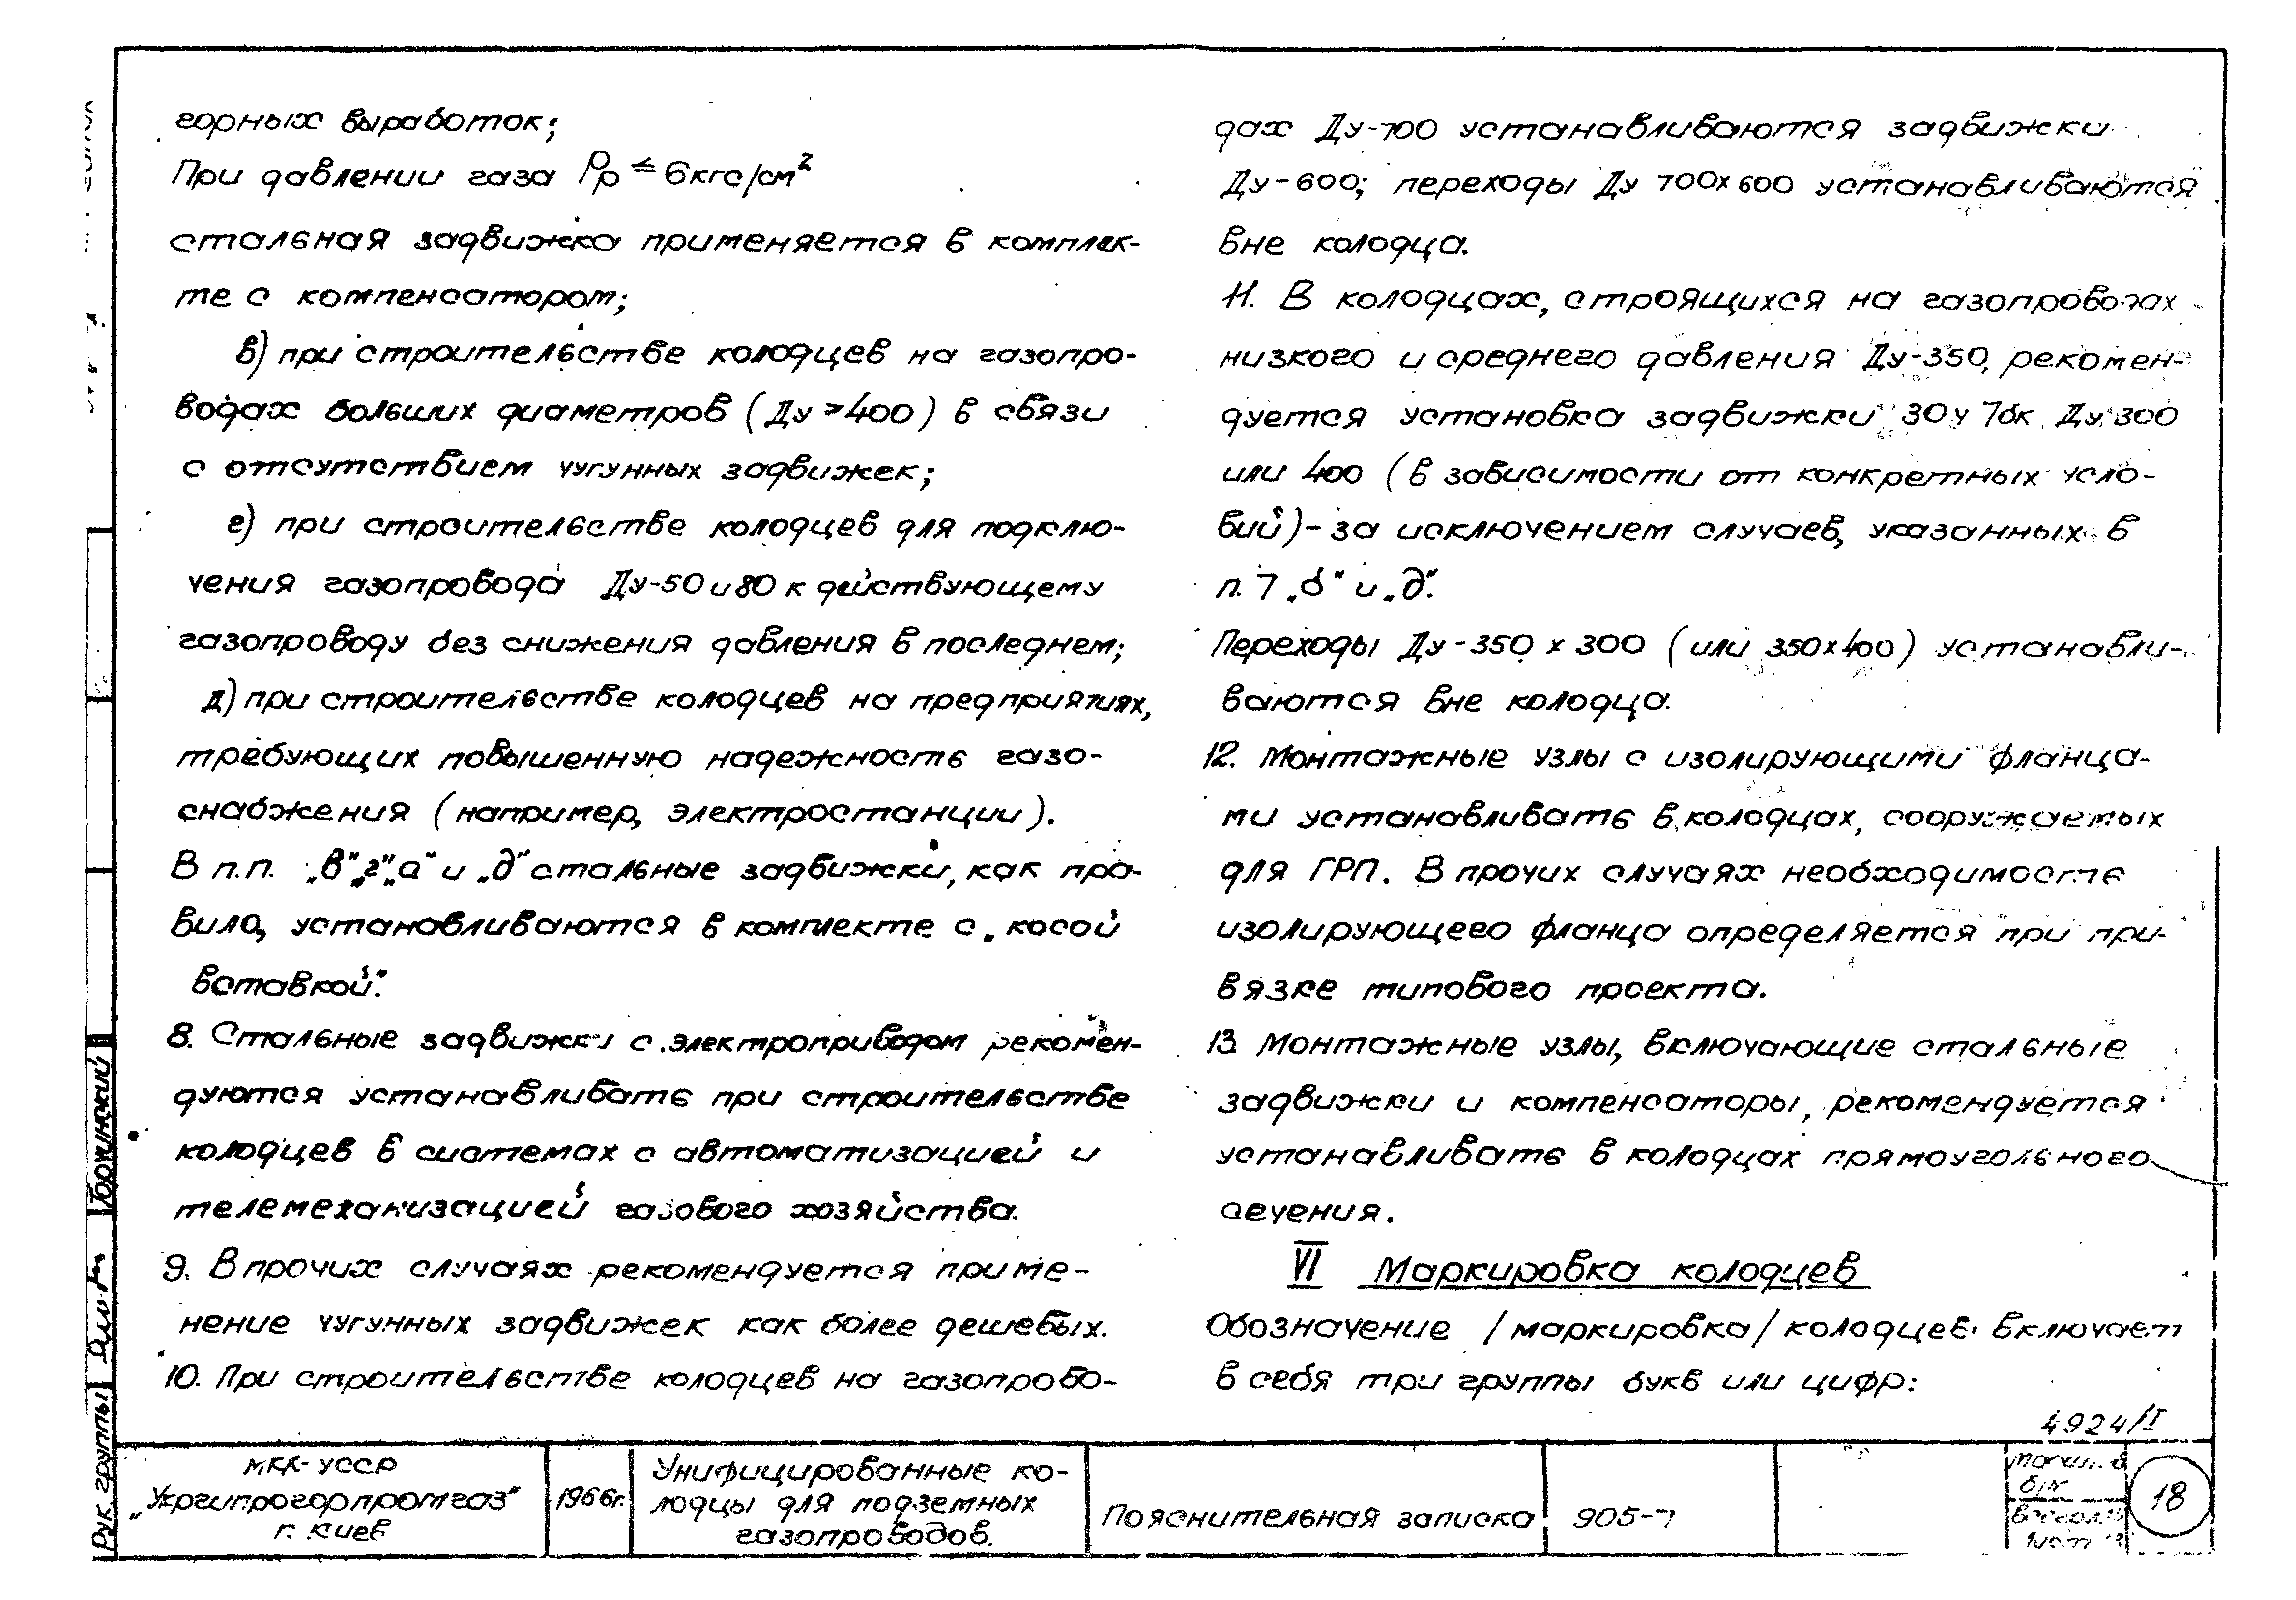 горных выработок;
При давлении газа Pр ≤ 6кгс/см²
стальная задвижка применяется в комплек-
те с компенсатором;
в) при строительстве колодцев на газопро-
водах больших диаметров (Ду ≥ 400) в связи
с отсутствием чугунных задвижек;
г) при строительстве колодцев для подклю-
чения газопровода Ду-50 и 80 к действующему
газопроводу без снижения давления в последнем;
д) при строительстве колодцев на предприятиях,
требующих повышенную надежность газо-
снабжения (например, электростанции).
В п.п. „в" „г" „а" и „д" стальные задвижки, как пра-
вило, устанавливаются в комплекте с „косой
вставкой".
8. Стальные задвижки с электроприводом рекомен-
дуются устанавливать при строительстве
колодцев в системах с автоматизацией и
телемеханизацией газового хозяйства.
9. В прочих случаях рекомендуется приме-
нение чугунных задвижек как более дешевых.
10. При строительстве колодцев на газопрово-
дах Ду-700 устанавливаются задвижки
Ду-600; переходы Ду 700х600 устанавливаются
вне колодца.
11. В колодцах, строящихся на газопроводах
низкого и среднего давления Ду-350, рекомен-
дуется установка задвижки 30ч7бк Ду 300
или 400 (в зависимости от конкретных усло-
вий)-за исключением случаев, указанных в
п. 7 „б" и „д".
Переходы Ду-350 х 300 (или 350х400) устанавли-
ваются вне колодца.
12. Монтажные узлы с изолирующими фланца-
ми устанавливать в колодцах, сооружаемых
для ГРП. В прочих случаях необходимость
изолирующего фланца определяется при при-
вязке типового проекта.
13. Монтажные узлы, включающие стальные
задвижки и компенсаторы, рекомендуется
устанавливать в колодцах прямоугольного
сечения.
VI Маркировка колодцев
Обозначение /маркировка/ колодцев включает
в себя три группы букв или цифр:
4924/I
МКХ-УССР
„Укргипрогорпромгаз"
г. Киев
1966г.
Унифицированные ко-
лодцы для подземных
газопроводов.
Пояснительная записка
905-7
18
Рук. группы